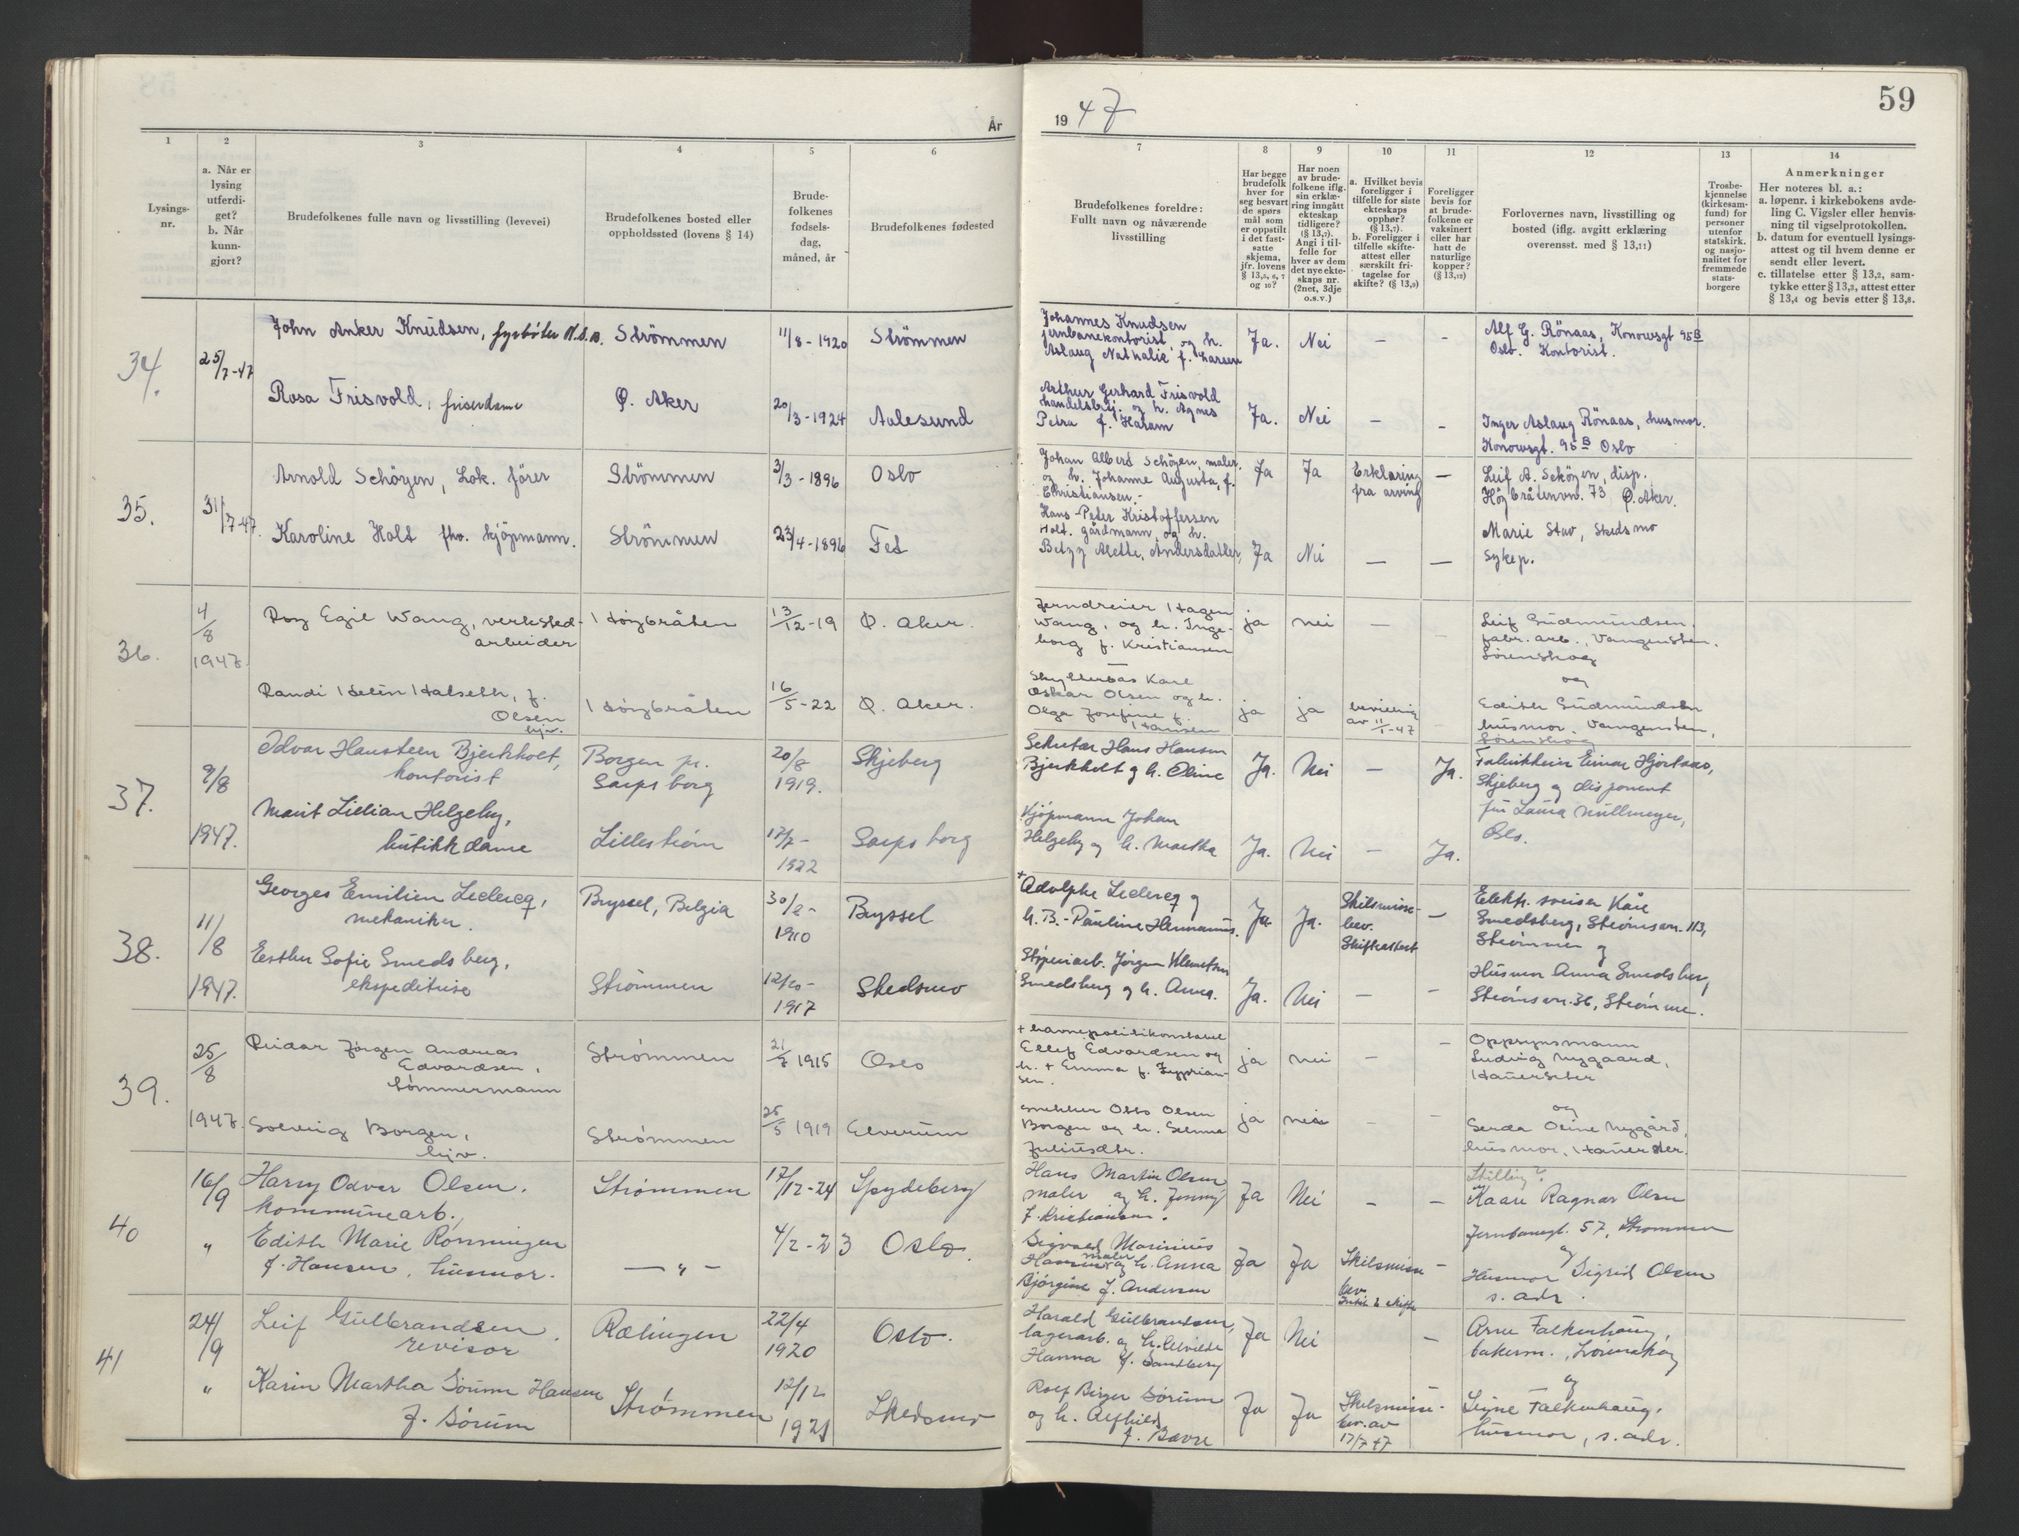 År 1947
59
1 2 3 4 5 6 7 8 9 10 11 12 13 14
Lysings-
nr.
a. Når er
lysing
utferdi-
get?
b. Når
kunn-
gjort?
Brudefolkenes fulle navn og livsstilling (levevei)
Brudefolkenes bosted eller
oppholdssted (lovens § 14)
Brude-
folkenes
fødsels-
dag,
måned, år
Brudefolkenes fødested
Brudefolkenes foreldre:
Fullt navn og nåværende
livsstilling
Har begge
brudefolk
hver for
seg besvart
de spørs
mål som
er oppstilt
i det fast-
satte
skjema,
jfr. lovens
§ 13,5, 6, 7
og 10?
Har noen
av brude-
folkene iflg.
sin erklæ-
ring inngått
ekteskap
tidligere?
(§ 13,7).
Angi i til-
felle for
hver av dem
det nye ekte-
skaps nr.
(2net, 3dje
o.s.v.)
a. Hvilket bevis
foreligger i
tilfelle for siste
ekteskaps
opphør?
(§ 13,7).
b. Foreligger i
tilfelle skifte-
attest eller
særskilt fri-
tagelse for
skifte? (§ 13,9)
Foreligger
bevis for
at brude-
folkene er
vaksinert
eller har
hatt de
naturlige
kopper?
(§ 13,12)
Forlovernes navn, livsstilling og
bosted (iflg. avgitt erklæring
overensst. med § 13,11)
Trosbe-
kjennelse
(kirkesam-
fund) for
personer
utenfor
statskirk.
og nasjo-
nalitet for
fremmede
stats-
borgere
Anmerkninger
Her noteres bl. a.:
a. løpenr. i kirkebokens avde-
ling C. Vigsler eller henvis-
ning til vigselprotokollen.
b. datum for eventuell lysings-
attest og til hvem denne er
sendt eller levert.
c. tillatelse etter § 13,2, sam-
tykke etter § 13,3, attest etter
§ 13,4 og bevis etter § 13,8.
34.
25/7-47
John Anker Knudsen, fyrbøter N.S.B. Strömmen 11/8-1920 Strömmen
Johannes Knudsen
jernbanekontorist og h.
Aslaug Nathalie f. Larsen
Ja. Nei — -
Alf G. Rönaas, Konowsgt 95B
Oslo. Kontorist.
Rosa Frisvold, frisørdame Ø. Aker 20/3-1924 Aalesund
Arthur Gerhard Frisvold
handelsbej. og h. Agnes
Petra f. Haram
Ja. Nei — -
Inger Aslaug Rönaas, husmor.
Konowsgt. 95B Oslo
35.
31/7-47.
Arnold Schöyen, Lok. förer Strömmen 3/3-1896 Oslo
Johan Albert Schöyen, maler.
og h. Johanne Augusta, f.
Christiansen.-
Ja Ja Erklæring
fra arving —
Leif A. Schöyen, disp.
Høybråtenvn. 73, Ø. Aker.
Karoline Holt fhv. kjöpmann. Strömmen 23/4-1896 Fet
Hans Peter Kristoffersen
Holt. gårdmann, og h.
Betzy Alette, Andersdatter,
Ja Nei — —
Marie Stav, Skedsmo
Sykep.
36.
4/8
1947.
Roy Egil Wang, verksted-
arbeider
Høybråten 13/12-19 Ø. Aker.
Jerndreier Hagen
Wang, og h. Inge-
borg f. Kristiansen
ja nei - -
Leif Gudmundsen,
fabr. arb. Vangensten.
Lörenskog
og
Randi Helen Halseth, f.
Olsen
hjv.
Høybråten 16/5-22 Ø. Aker.
Oskar Olsen og h.
Olga Josefine f.
Hansen
ja ja bevilling
av 11/1-47 -
Edith Gudmundsen
husmor. Vangensten,
Lörenskog
37.
9/8
1947.
Idvar Hansteen Bjerkholt,
kontorist
Borgen pr.
Sarpsborg
20/8
1919.
Skjeberg
Sekretær Hans Hansen
Bjerkholt og h. Oline
Ja. Nei — Ja.
Fabrikkeier Einar Hjortaas,
Skjeberg og disponent
Oslo.
Marit Lillian Helgeby,
butikkdame
Lillestrøm
17/7-
1922
Sarpsborg
Kjøpmann Johan
Helgeby og h. Martha
Ja. Nei — Ja.
38.
11/8
1947.
Georges Emilien Leclercq,
mekaniker.
Bryssel, Belgia
30/2-
1910
Bryssel
+Adolphe Leclercq og
h. B.-Pauline Hermanns.
Ja. Ja. Skilsmisse-
bev.
Skifteattest —
Elektr. sveiser Kåre
Smedsberg, Strømsvn. 113,
Strømmen og
Esther Sofie Smedsberg,
ekspeditrise
Strømmen
12/10-
1917
Skedsmo
Støperiarb. Jørgen Klemetsen
Smedsberg og h. Anna.
Ja. Nei — -
Husmor Anna Smedsberg,
Strømsvn. 36, Strømme.
39.
25/8
1947.
Reidar Jørgen Andreas
Edvardsen,
tømmermann
Strømmen 21/7 1915 Oslo
+ havnepolitikonstabel
Ellef Edvardsen og
h. + Emma f. Zyprian-
sen.
ja nei - -
Oppsynsmann
Ludvig Nygaard,
og
Solveig Borgen,
hjv.
Strømmen 25/5 1919 Elverum
snekker Otto Olsen
Borgen og h. Selma
Juliusdtr.
ja nei - -
Gerda Oline Nygård,
husmor,
40
16/9
"
Harry Odvar Olsen.
kommunearb.
Strømmen 17/12-24 Spydeberg
Hans Martin Olsen
maler og h. Jenny
f. Kristiansen.
Ja Nei - -
Stilling?
Kaare Ragnar Olsen
Jernbanegt. 57, Strømmen
og
Edith Marie Rønningen
f. Hansen, husmor.
— " —
4/2-23 Oslo.
Sigvald Marinius
Hansen maler og h. Anna
Bjørgine f. Andersen
Ja Ja Skilsmisse
bev. -
Husmor Sigrid Olsen
s. adr.
41
24/9
"
Leif Gulbrandsen.
revisor
Rælingen
22/4
1920
Oslo.
Harald Gulbrandsen,
lagerarb. og h. Alvilde
Hanna f. Sandberg
Ja Nei —
Arne Falkenhaug,
bakerm., Lörenskog
og
Karin Martha Sörum Hansen
f. Sörum
Strømmen
12/12
1921
Skedsmo
Rolf Birger Sörum
og h. Alfhild
f. Bævre
Ja Ja Skilsmisse-
bev. av
17/7 47
Signe Falkenhaug,
husmor, s. adr.